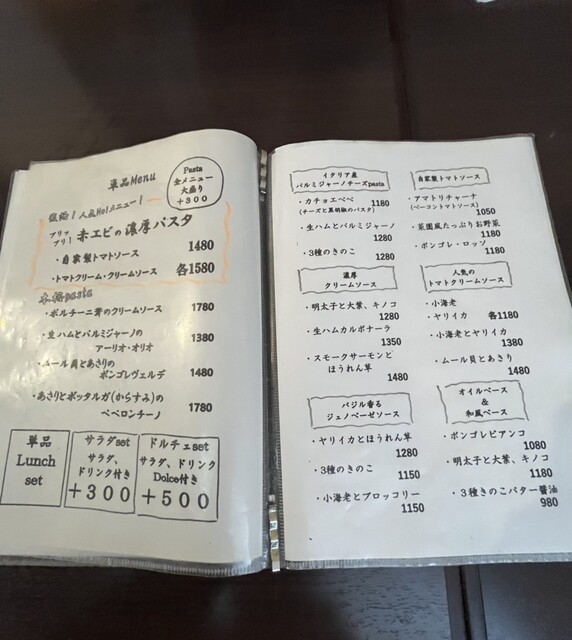 単品Menu
Pasta
全メニュー
大盛り
+300
人気No1メニュー!
プリップリ!
赤エビの濃厚パスタ
・自家製トマトソース 1480
・トマトクリーム・クリームソース 各1580
本格pasta
・ポルチーニ茸のクリームソース 1780
・生ハムとパルミジャーノの
アーリオ・オリオ 1380
・ムール貝とあさりの
ボンゴレヴェルデ 1480
・あさりとボッタルガ(からすみ)の
ペペロンチーノ 1780
単品
Lunch
set
サラダset
サラダ、
ドリンク付き
+300
ドルチェset
サラダ、ドリンク
Dolce付き
+500
イタリア産
パルミジャーノチーズpasta
・カチョエペペ 1180
(チーズと黒胡椒のパスタ)
・生ハムとパルミジャーノ
1280
・3種のきのこ
1280
濃厚
クリームソース
・明太子と大葉、キノコ
1280
・生ハムカルボナーラ
1350
・スモークサーモンと
ほうれん草
1480
バジル香る
ジェノベーゼソース
・ヤリイカとほうれん草
1280
・3種のきのこ
1150
・小海老とブロッコリー
1150
自家製トマトソース
・アマトリチャーナ
(ベーコントマトソース)
1050
・菜園風たっぷりお野菜
1180
・ボンゴレ・ロッソ
1180
人気の
トマトクリームソース
・小海老
・ヤリイカ 各1180
・小海老とヤリイカ
1380
・ムール貝とあさり
1480
オイルベース
&
和風ベース
・ボンゴレビアンコ
1080
・明太子と大葉、キノコ
1180
・3種きのこバター醤油
980